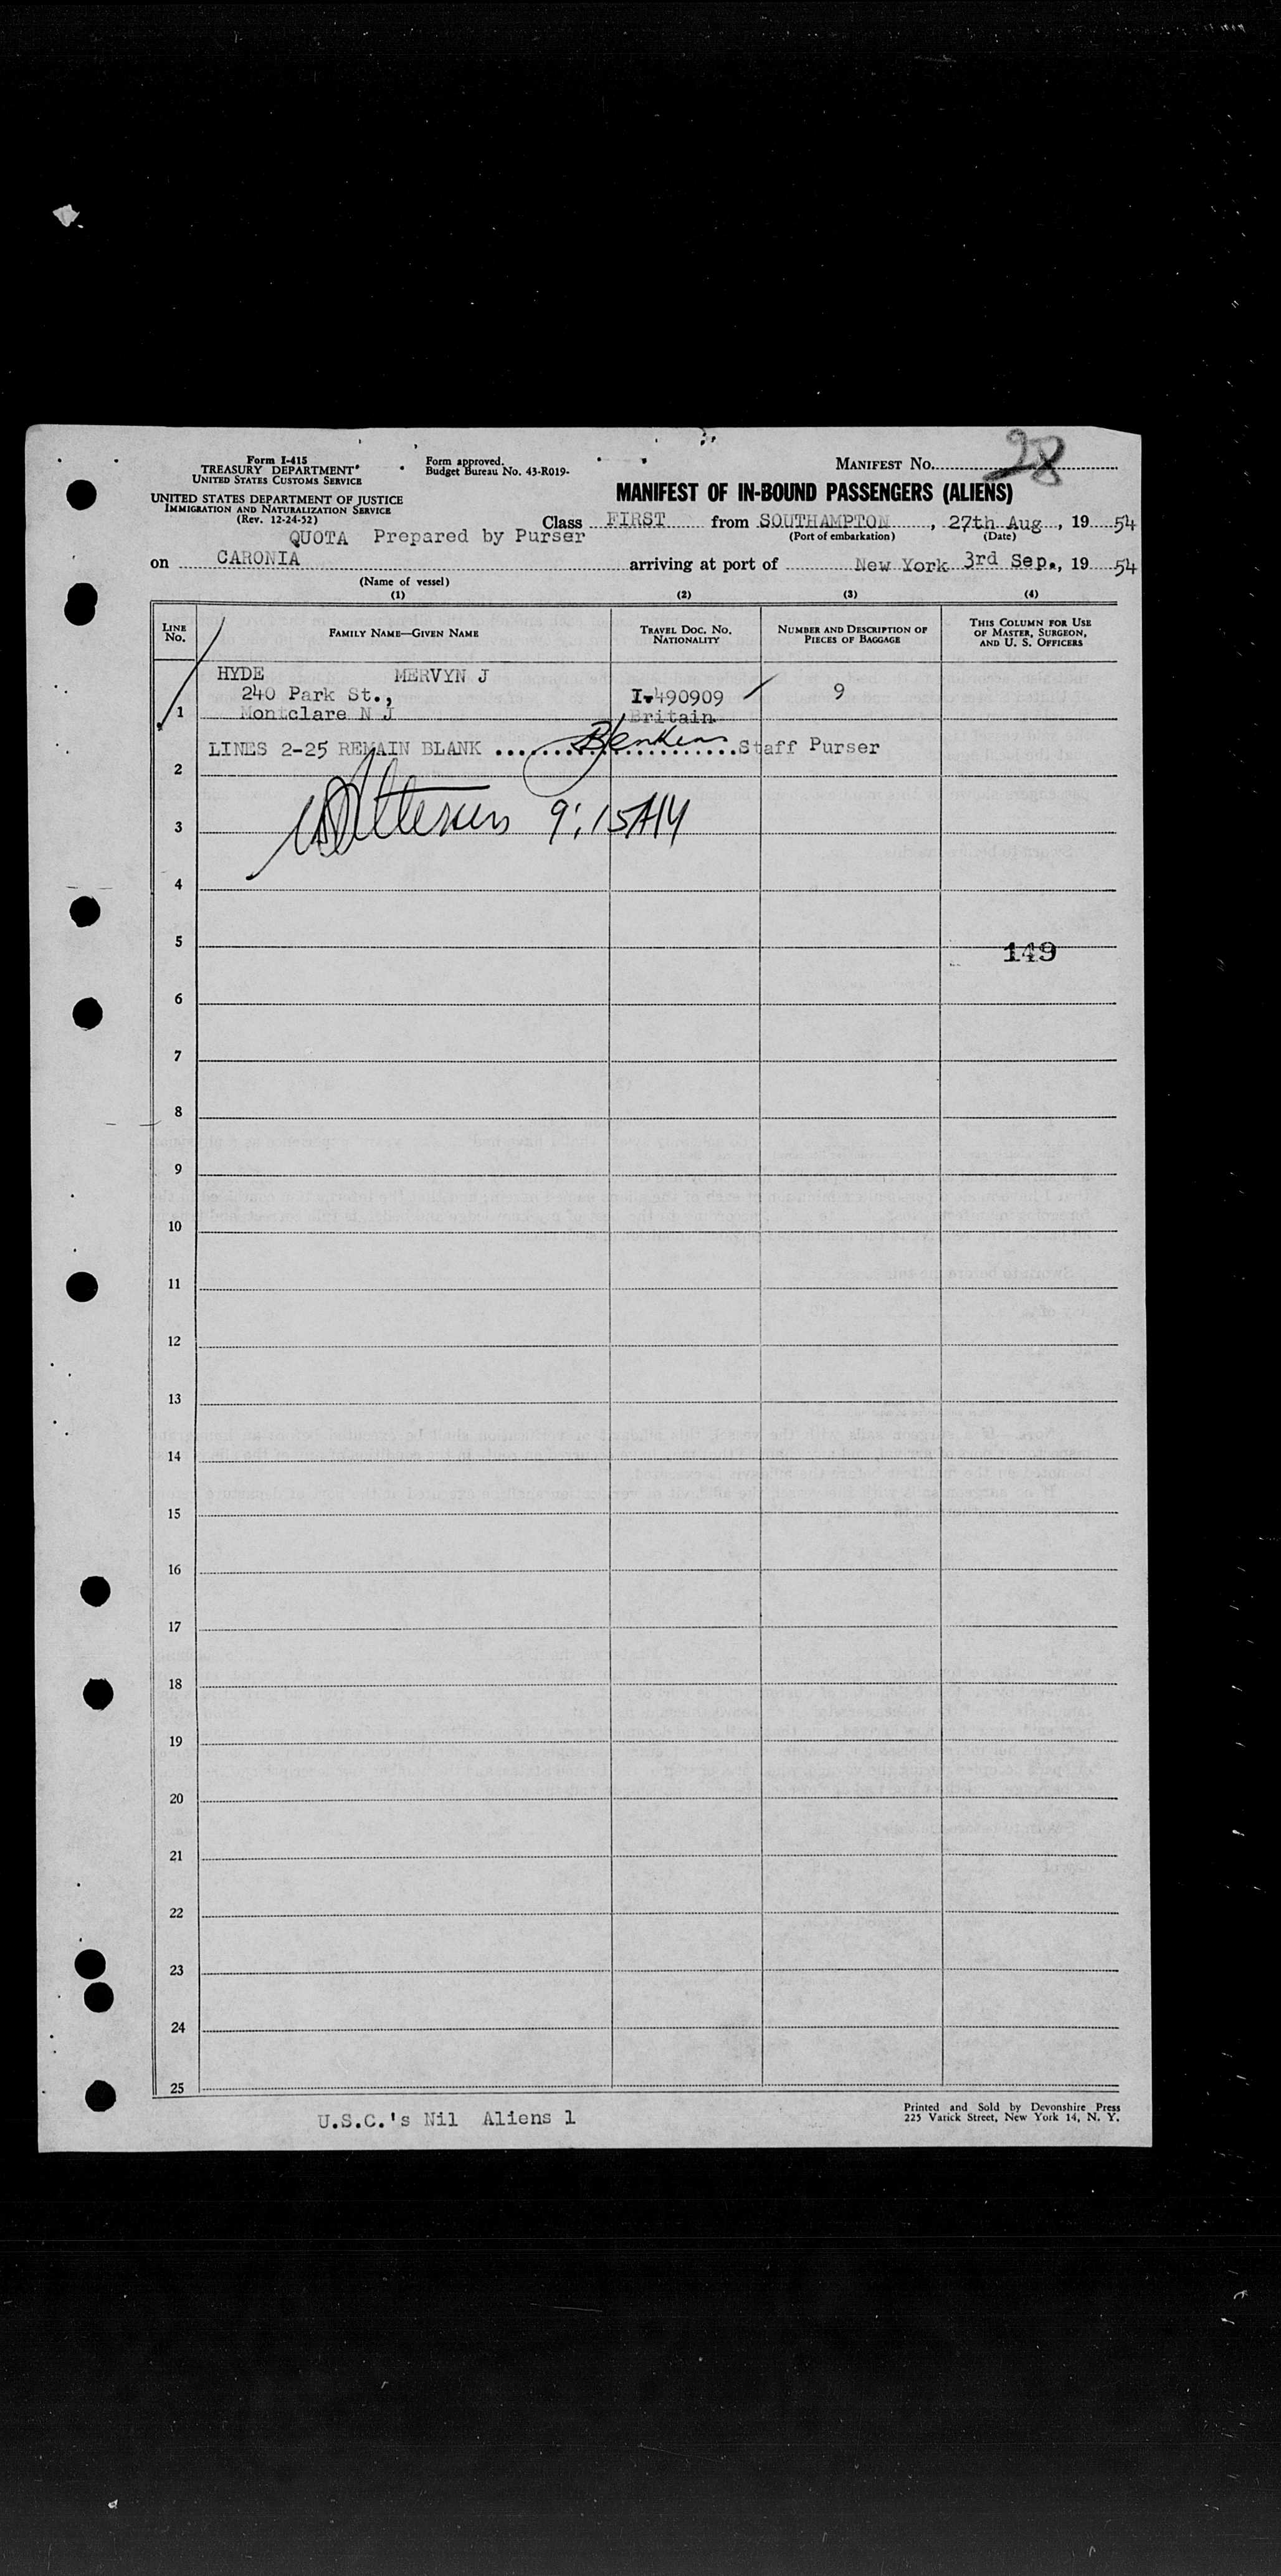 28
Form I-415
TREASURY DEPARTMENT
UNITED STATES CUSTOMS SERVICE
Form approved.
Budget Bureau No. 43-R019-
MANIFEST No.
UNITED STATES DEPARTMENT OF JUSTICE
IMMIGRATION AND NATURALIZATION SERVICE
(Rev. 12-24-52)
MANIFEST OF IN-BOUND PASSENGERS (ALIENS)
Class FIRST from SOUTHAMPTON, 27th Aug, 19 54
(Port of embarkation) (Date)
QUOTA Prepared by Purser
on CARONIA arriving at port of New York 3rd Sep., 19 54
(Name of vessel)
(1) (2) (3) (4)
LINE No. FAMILY NAME—GIVEN NAME TRAVEL DOC. No. NATIONALITY NUMBER AND DESCRIPTION OF PIECES OF BAGGAGE THIS COLUMN FOR USE OF MASTER, SURGEON, AND U. S. OFFICERS
HYDE MERVYN J
240 Park St., I-490909 9
1 Montclare N J Britain
LINES 2-25 REMAIN BLANK BJenkins Staff Purser
2
9:15AM
3
4
5 149
6
7
8
9
10
11
12
13
14
15
16
17
18
19
20
21
22
23
24
25
U.S.C.'s Nil Aliens 1
Printed and Sold by Devonshire Press
225 Varick Street, New York 14, N. Y.